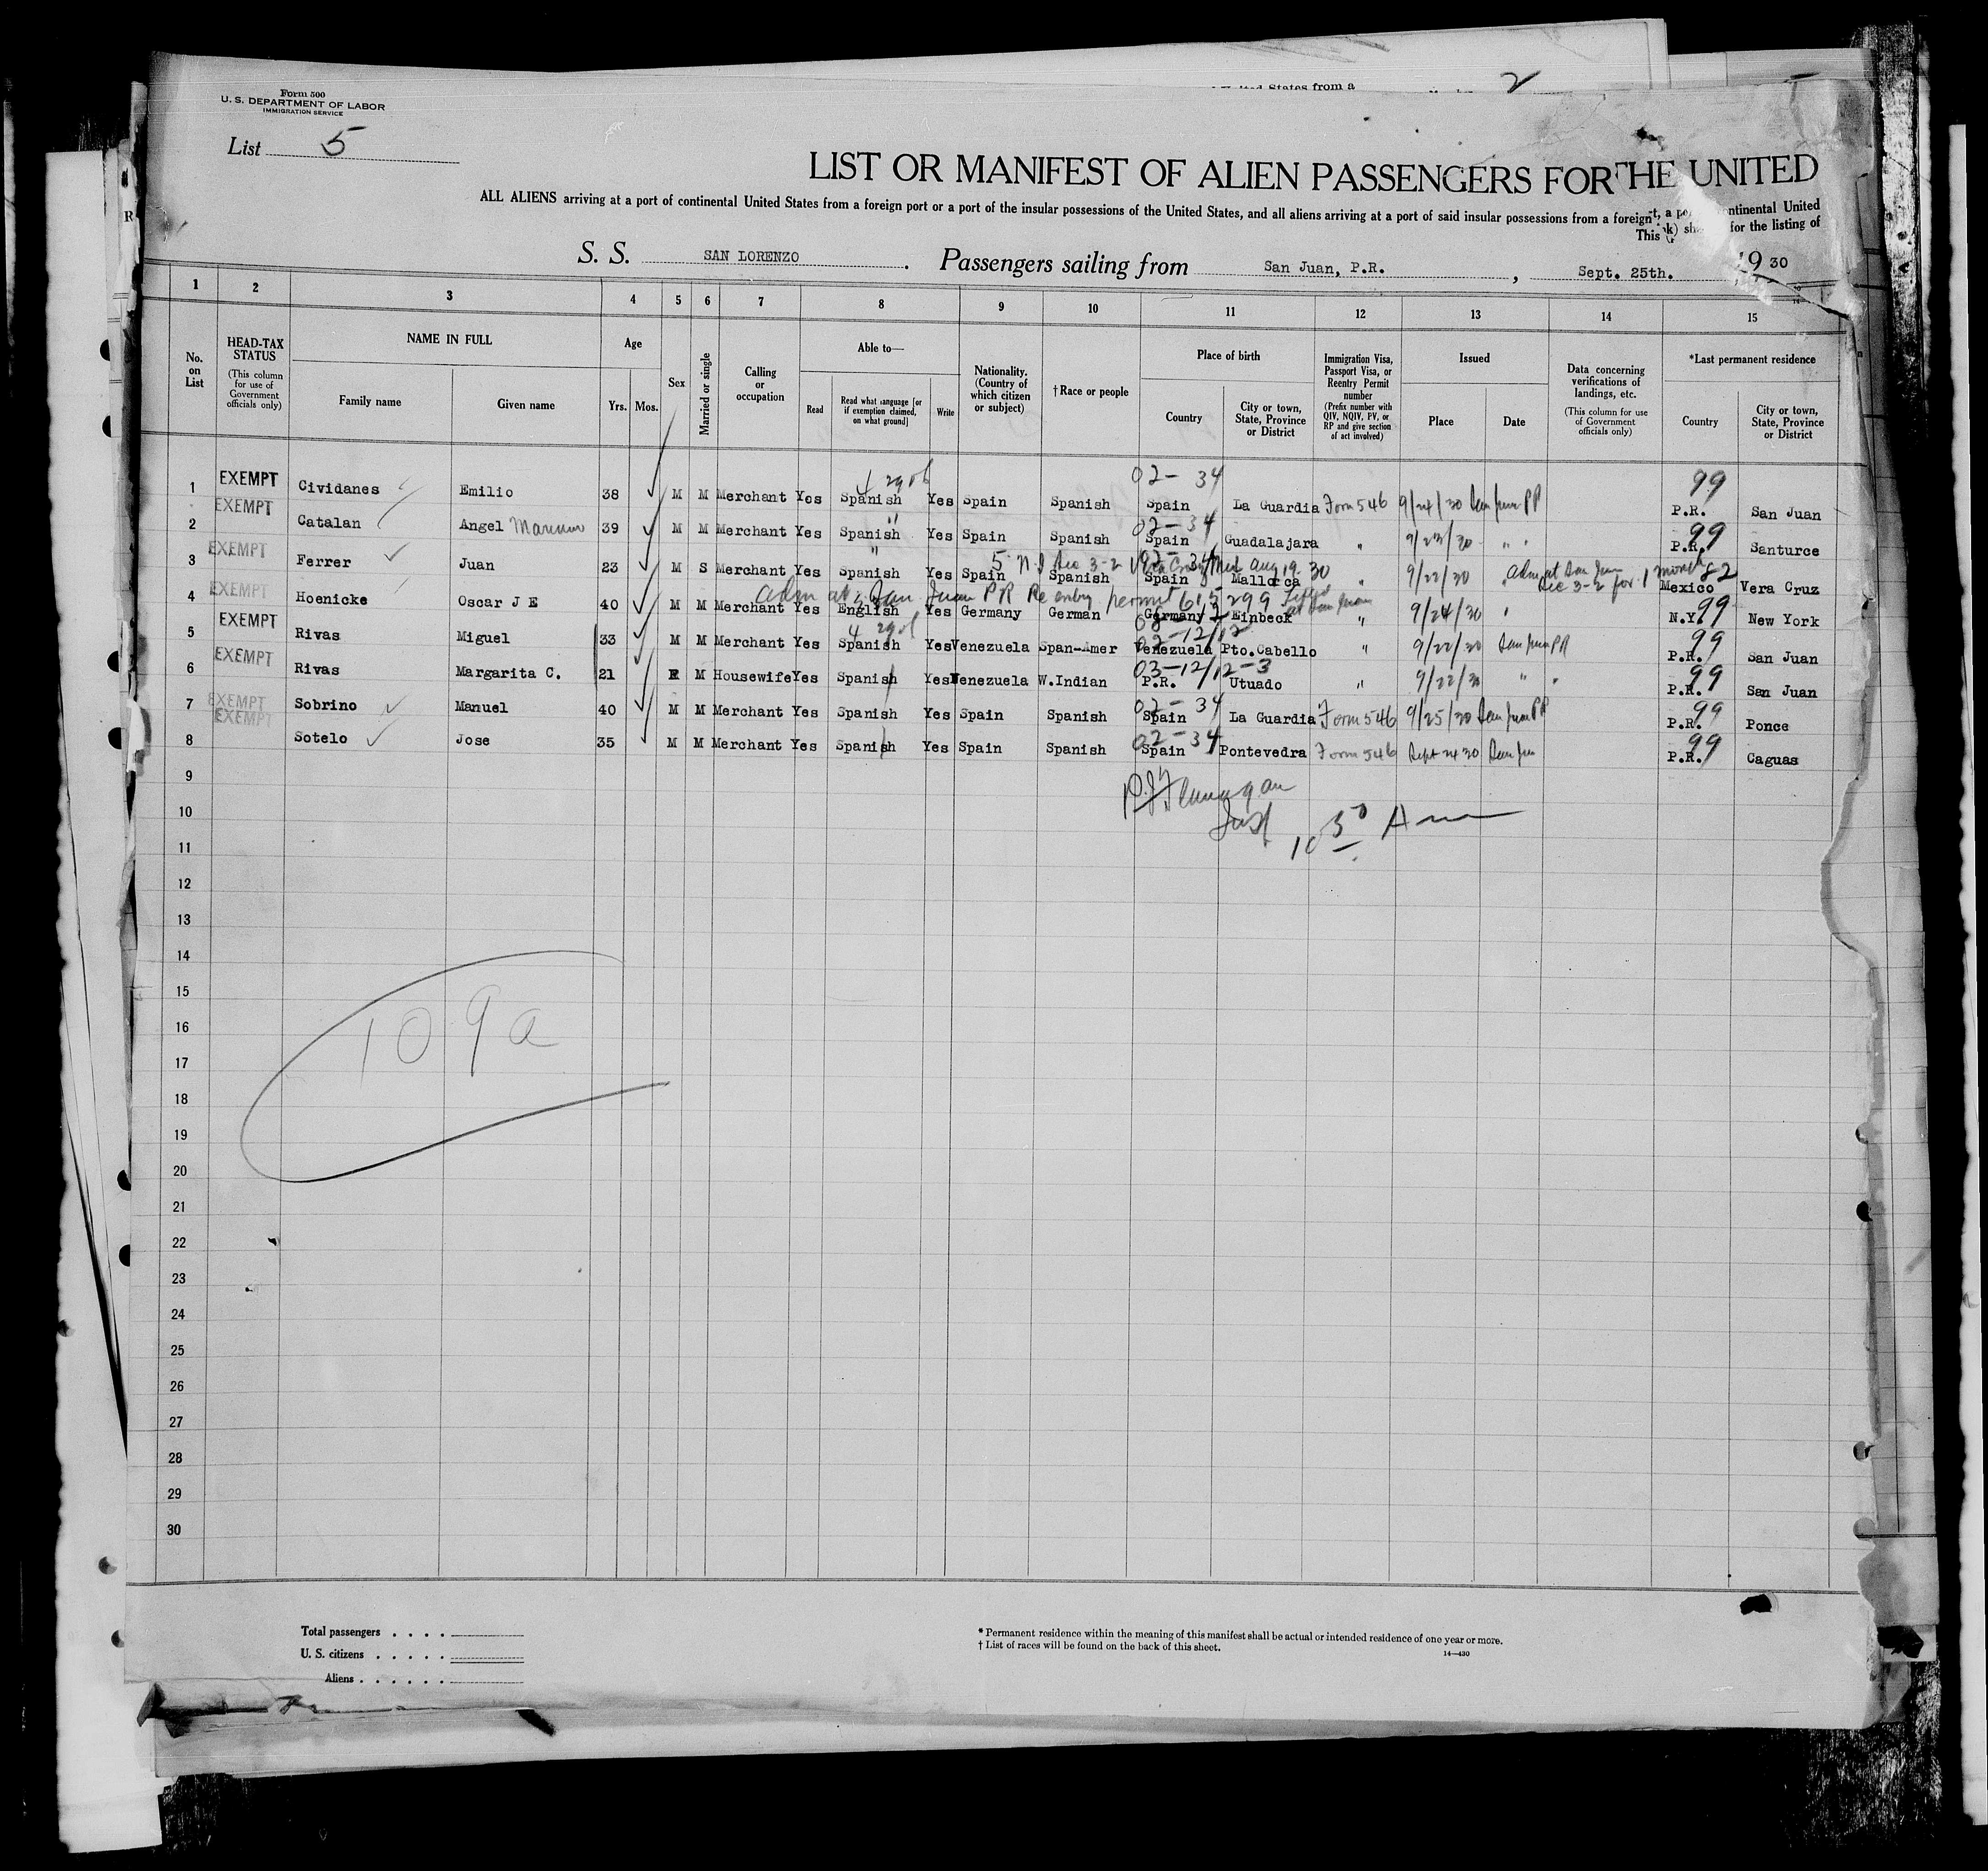 ited States from a
2
Form 500
U. S. DEPARTMENT OF LABOR
IMMIGRATION SERVICE
List 5
LIST OR MANIFEST OF ALIEN PASSENGERS FOR THE UNITED
ALL ALIENS arriving at a port of continental United States from a foreign port or a port of the insular possessions of the United States, and all aliens arriving at a port of said insular possessions from a foreign
t, a po ntinental United
This k) sh for the listing of
S. S. SAN LORENZO. Passengers sailing from San Juan, P.R., Sept. 25th. 1930
1 2 3 4 5 6 7 8 9 10 11 12 13 14 15
No. on List
HEAD-TAX STATUS (This column for use of Government officials only)
NAME IN FULL
Family name Given name
Age
Yrs. Mos.
Sex
Married or single
Calling or occupation
Able to—
Read Read what language [or if exemption claimed, on what ground] Write
Nationality. (Country of which citizen or subject)
†Race or people
Place of birth
Country City or town, State, Province or District
Immigration Visa, Passport Visa, or Reentry Permit number (Prefix number with QIV, NQIV, PV, or RP and give section of act involved)
Issued
Place Date
Data concerning verifications of landings, etc. (This column for use of Government officials only)
*Last permanent residence
Country City or town, State, Province or District
02-34 99
1 EXEMPT Cividanes Emilio 38 M M Merchant Yes Spanish Yes Spain Spanish Spain La Guardia Form 546 9/24/30 San Juan PR P.R. San Juan
02-34 99
2 EXEMPT Catalan Angel 39 M M Merchant Yes Spanish Yes Spain Spanish Spain Guadalajara " 9/23/30 " " P.R. Santurce
5 N.I. Sec 3-2 Vera Cruz Mex Aug 19 30
02-34 adm at San Juan Sec 3-2 for 1 month 82
3 EXEMPT Ferrer Juan 23 M S Merchant Yes Spanish Yes Spain Spanish Spain Mallorca " 9/22/30 " Mexico Vera Cruz
adm at San Juan PR Re entry permit 615299 at San Juan
4 EXEMPT Hoenicke Oscar J E 40 M M Merchant Yes English Yes Germany German Germany Einbeck " 9/24/30 " N.Y. 99 New York
02-12/12 99
5 EXEMPT Rivas Miguel 33 M M Merchant Yes Spanish Yes Venezuela Span-Amer Venezuela Pto.Cabello " 9/22/30 San Juan PR P.R. San Juan
03-12/12-3 99
6 EXEMPT Rivas Margarita C. 21 F M Housewife Yes Spanish Yes Venezuela W.Indian P.R. Utuado " 9/22/30 " " P.R. San Juan
02-34 99
7 EXEMPT Sobrino Manuel 40 M M Merchant Yes Spanish Yes Spain Spanish Spain La Guardia Form 546 9/25/30 San Juan PR P.R. Ponce
02-34 99
8 EXEMPT Sotelo Jose 35 M M Merchant Yes Spanish Yes Spain Spanish Spain Pontevedra Form 546 Sept 24 30 San Juan P.R. Caguas
9
P.J. Flannagan
10
Insp
10 30 Am
11
12
13
14
15
16
109a
17
18
19
20
21
22
23
24
25
26
27
28
29
30
Total passengers . . . .
U. S. citizens . . . . .
Aliens . . . . . .
* Permanent residence within the meaning of this manifest shall be actual or intended residence of one year or more.
† List of races will be found on the back of this sheet.
14—430